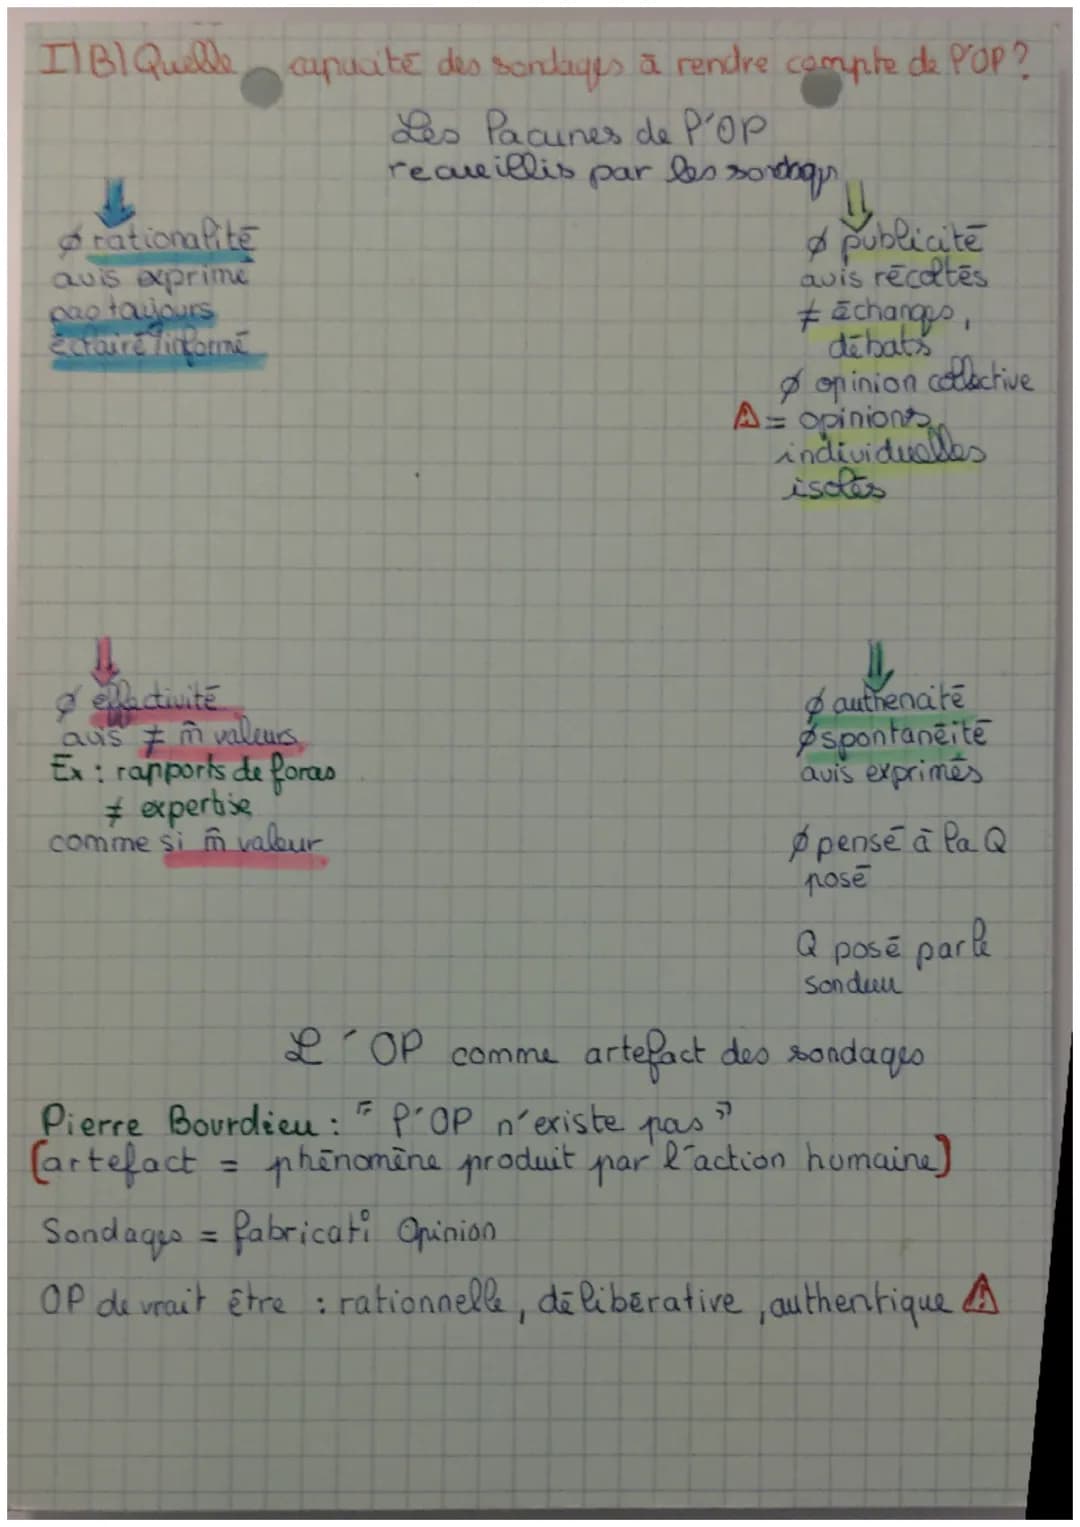 I) B) Quelle capacité des sondages à rendre compte de l'OP ?
Les lacunes de l'OP
recueillis par les sondages
Ø rationalité
avis exprimé
pas toujours
éclairé / informé
Ø publicité
avis récoltés
≠ échanges,
débats
Ø opinion collective
⚠ = opinions
individuelles
isolés
Ø effectivité
avis ≠ m̂ valeurs
Ex : rapports de forces
≠ expertise
comme si m̂ valeur
Ø authencité
Ø spontanéité
avis exprimés
Ø pensé à la Q
posé
Q posé par le
sondeur
L'OP comme artefact des sondages
Pierre Bourdieu : " l'OP n'existe pas "
[artefact = phénomène produit par l'action humaine]
Sondages = fabricati° Opinion
OP devrait être : rationnelle, délibérative, authentique ⚠